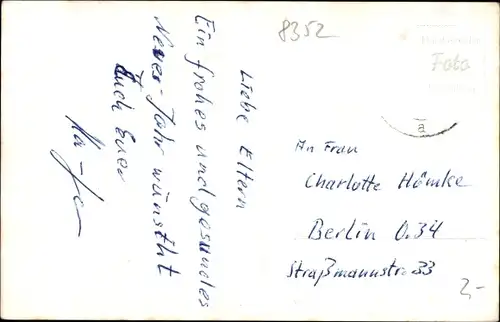 8352
Liebe Eltern
Ein frohes und gesundes
Neues-Jahr wünscht
Euch Euer
Foto
a
An Frau
Charlotte Hömke
Berlin O.34
Straßmannstr. 33
2,-